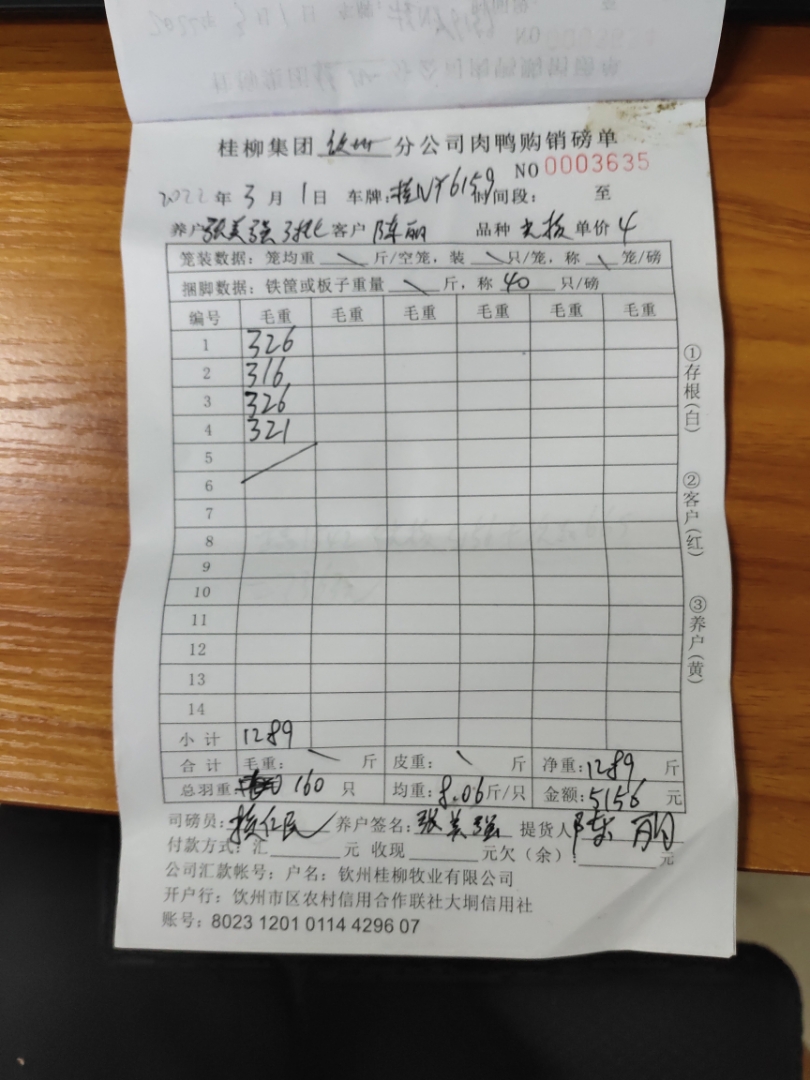 桂柳集团 钦州 分公司肉鸭购销磅单
NO 0003635
2022 年 3 月 1 日 车牌:桂NY6159 时间段: 至
养户 张美强 客户 陈丽 品种 单价 4
笼装数据: 笼均重 \ 斤/空笼, 装 \ 只/笼, 称 \ 笼/磅
捆脚数据: 铁筐或板子重量 \ 斤, 称 40 只/磅
编号 毛重 毛重 毛重 毛重 毛重 毛重
1 326
2 316
3 326
4 321
5
6
7
8
9
10
11
12
13
14
小计 1289
合计 毛重: \ 斤 皮重: \ 斤 净重: 1289 斤
总羽重: 160 只 均重: 8.06 斤/只 金额: 5156 元
司磅员: 养户签名: 张美强 提货人 陈丽
付款方式: 汇 元 收现 元欠(余): 元
公司汇款帐号: 户名: 钦州桂柳牧业有限公司
开户行: 钦州市区农村信用合作联社大垌信用社
账号: 8023 1201 0114 4296 07
①存根(白)
②客户(红)
③养户(黄)